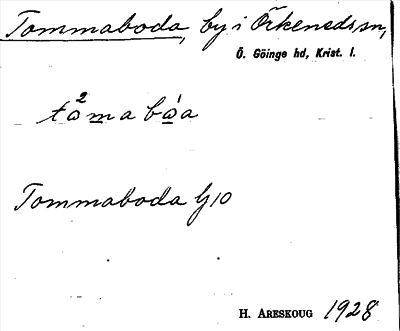 Tommaboda, by i Örkeneds sn,
Ö. Göinge hd, Krist. l.
tòmabòa
Tommaboda G10
H. ARESKOUG 1928